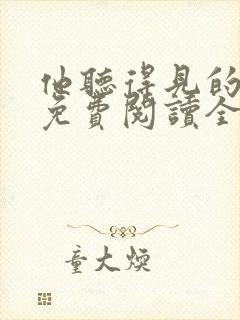 他聽得見的
免費閱讀全
童大煥